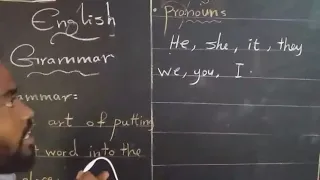 English
Grammar
ammar:
art of putting
t word into the
place.
Pronouns
He, she, it, they
we, you, I.